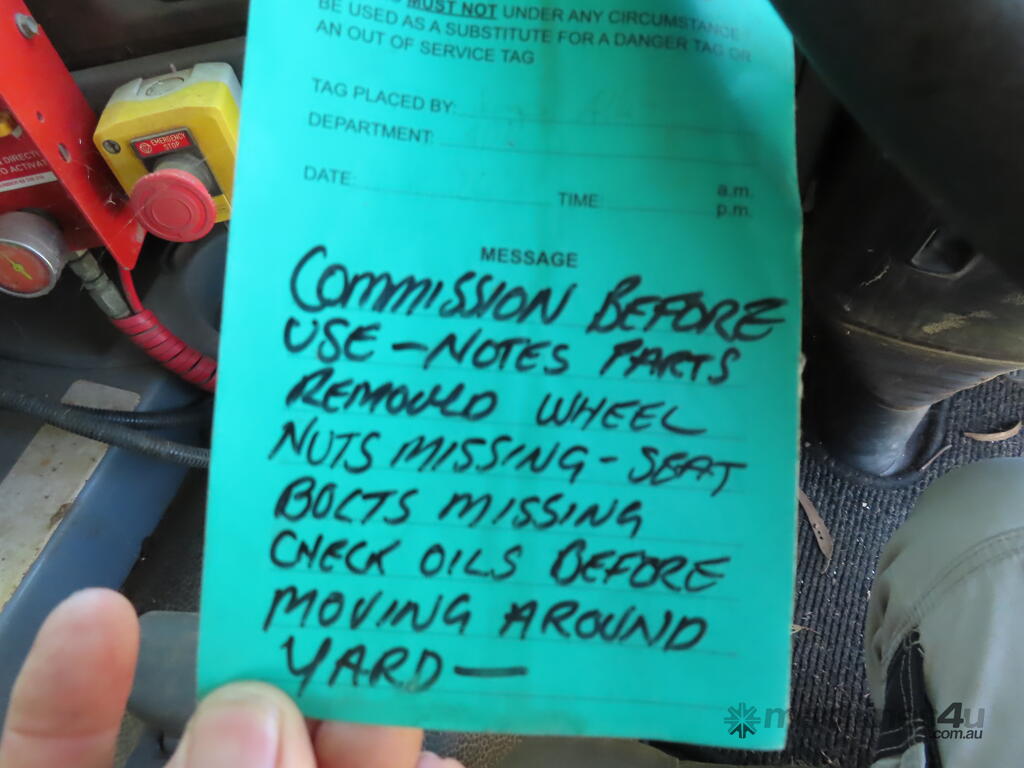 MUST NOT UNDER ANY CIRCUMSTANCE
BE USED AS A SUBSTITUTE FOR A DANGER TAG OR
AN OUT OF SERVICE TAG
TAG PLACED BY:
DEPARTMENT:
DATE: TIME: a.m.
p.m.
MESSAGE
COMMISSION BEFORE
USE - NOTES PARTS
REMOVED WHEEL
NUTS MISSING - SEAT
BOLTS MISSING
CHECK OILS BEFORE
MOVING AROUND
YARD —
EMERGENCY
STOP
machines4u
.com.au